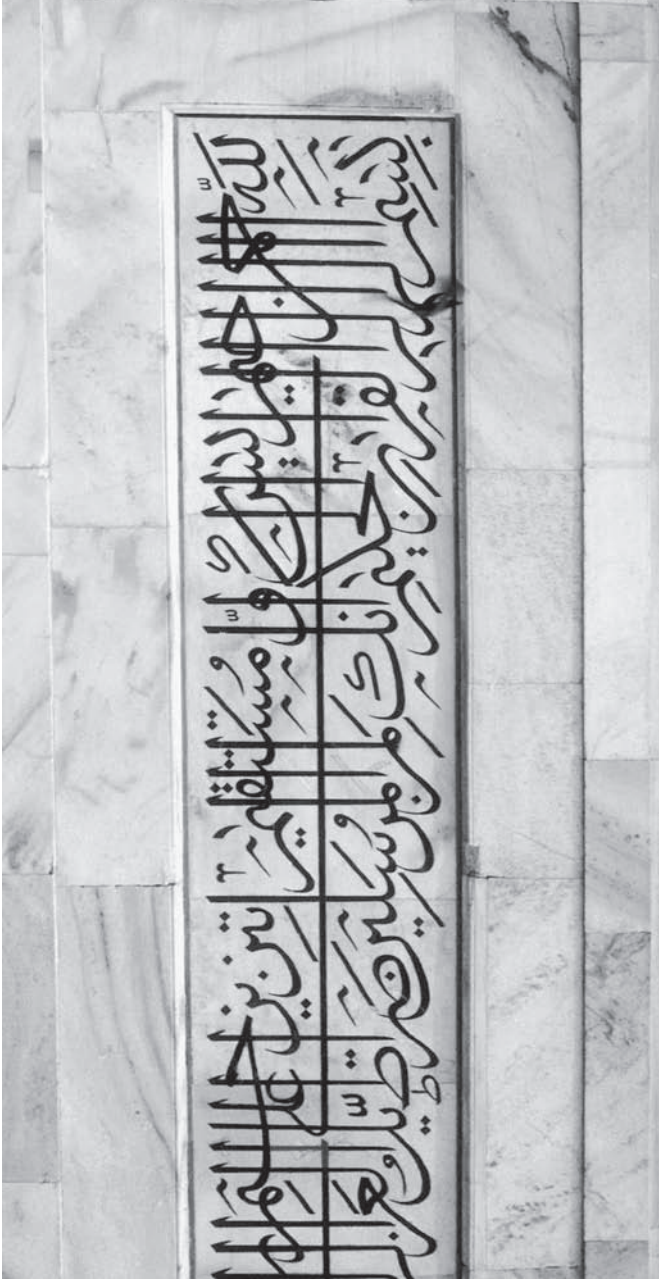 بسم الله الرحمن الرحيم يس والقرآن الحكيم إنك لمن المرسلين على صراط مستقيم تنزيل العزيز